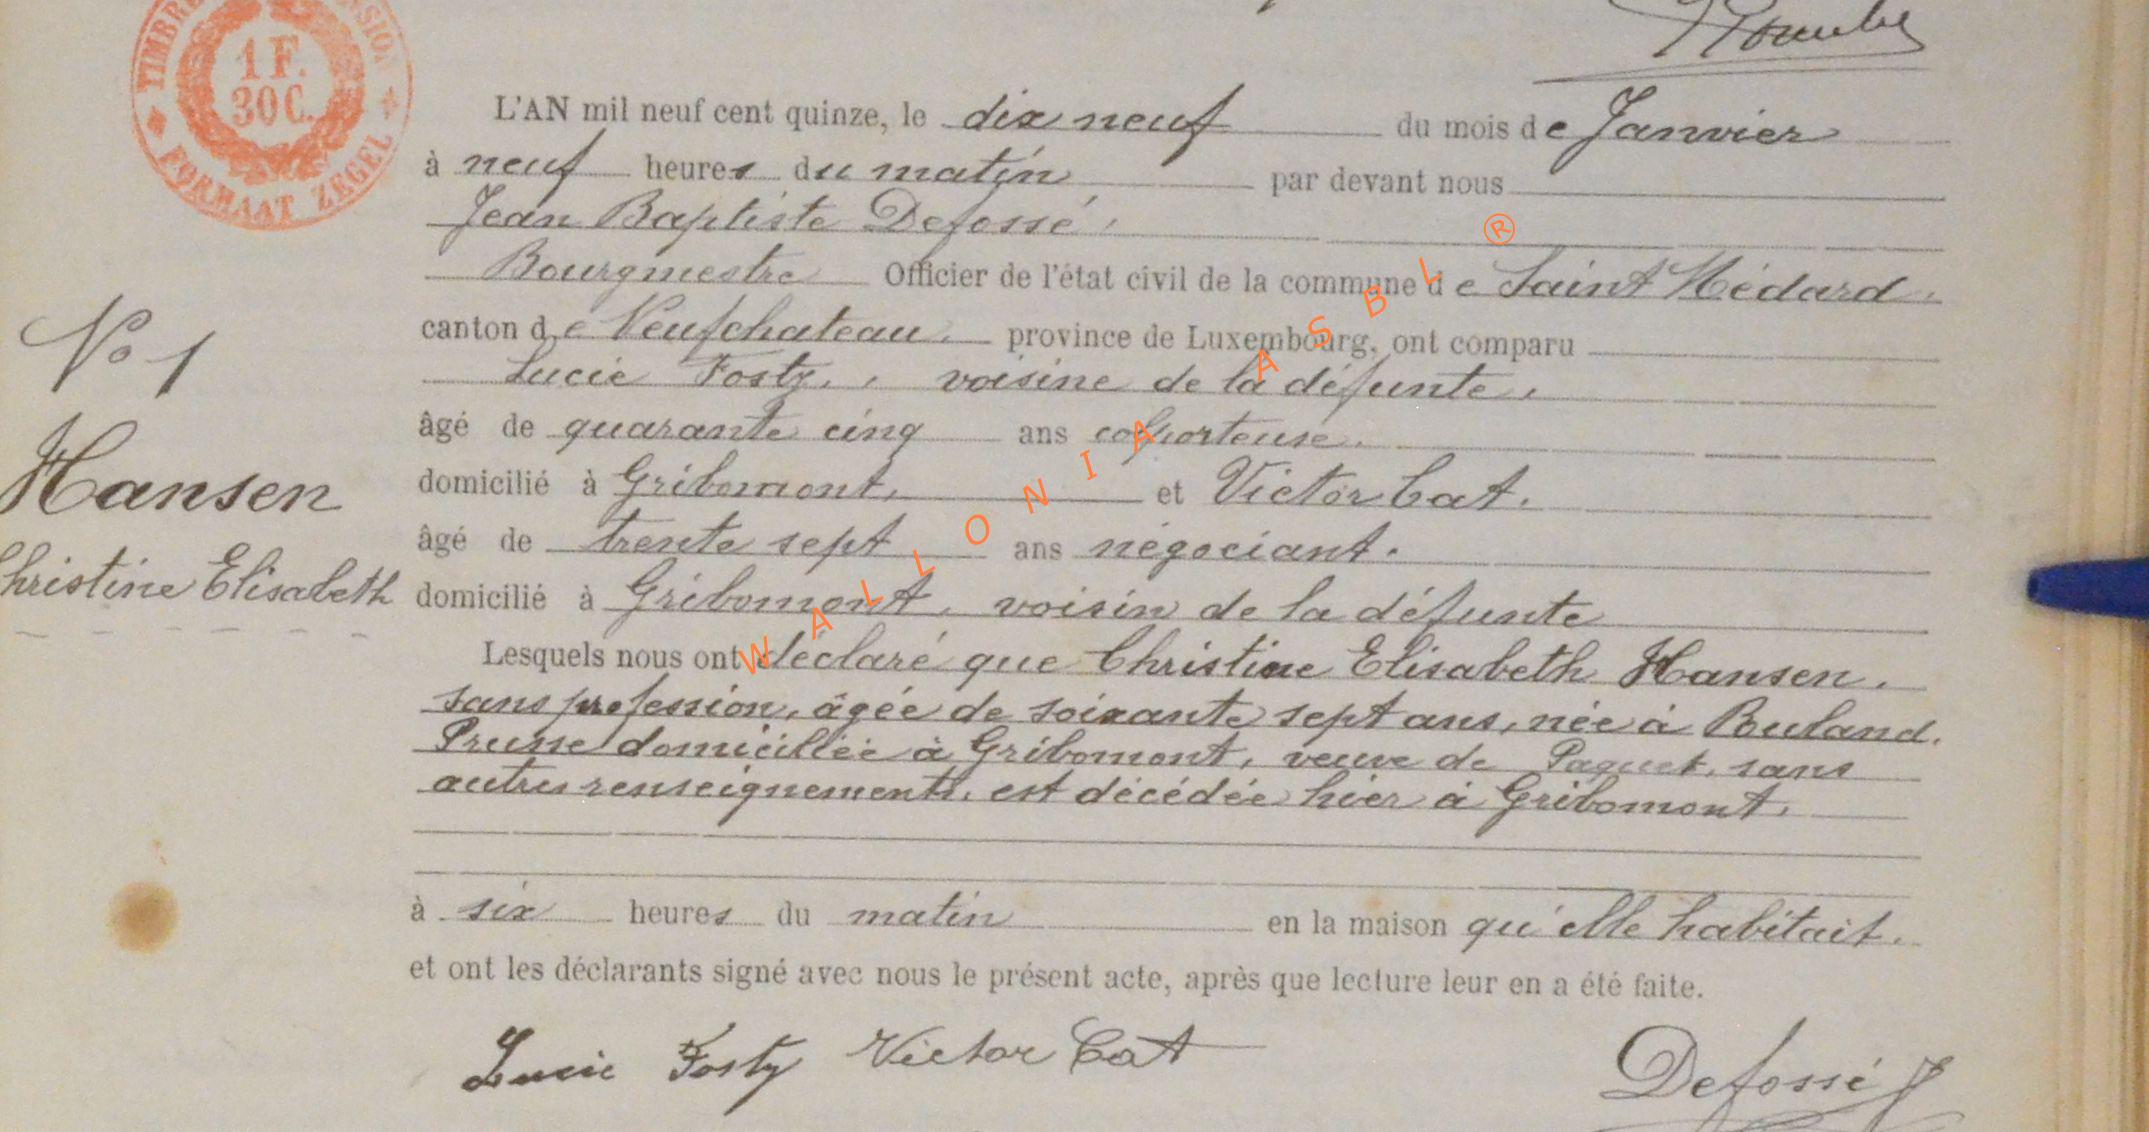 TIMBRE
1 F.
30 C.
FORMAAT ZEGEL
L'AN mil neuf cent quinze, le dix neuf du mois de Janvier
à neuf heures du matin par devant nous
Jean Baptiste Defossé,
Bourgmestre Officier de l'état civil de la commune de Saint Médard,
canton de Neufchateau, province de Luxembourg, ont comparu
Lucie Fosty, voisine de la défunte,
âgé de quarante cinq ans colporteuse,
domicilié à Gribomont, et Victor Cat.
âgé de trente sept ans négociant.
domicilié à Gribomont, voisin de la défunte
Lesquels nous ont déclaré que Christine Elisabeth Hansen,
sans profession, âgée de soixante sept ans, née à Buland,
Prusse domiciliée à Gribomont, veuve de Paquet, sans
autres renseignements, est décédée hier à Gribomont,
à six heures du matin en la maison qu'elle habitait.
et ont les déclarants signé avec nous le présent acte, après que lecture leur en a été faite.
Lucie Fosty Victor Cat
Defossé J
No 1
Hansen
Christine Elisabeth
WALLONIA ASBL ®